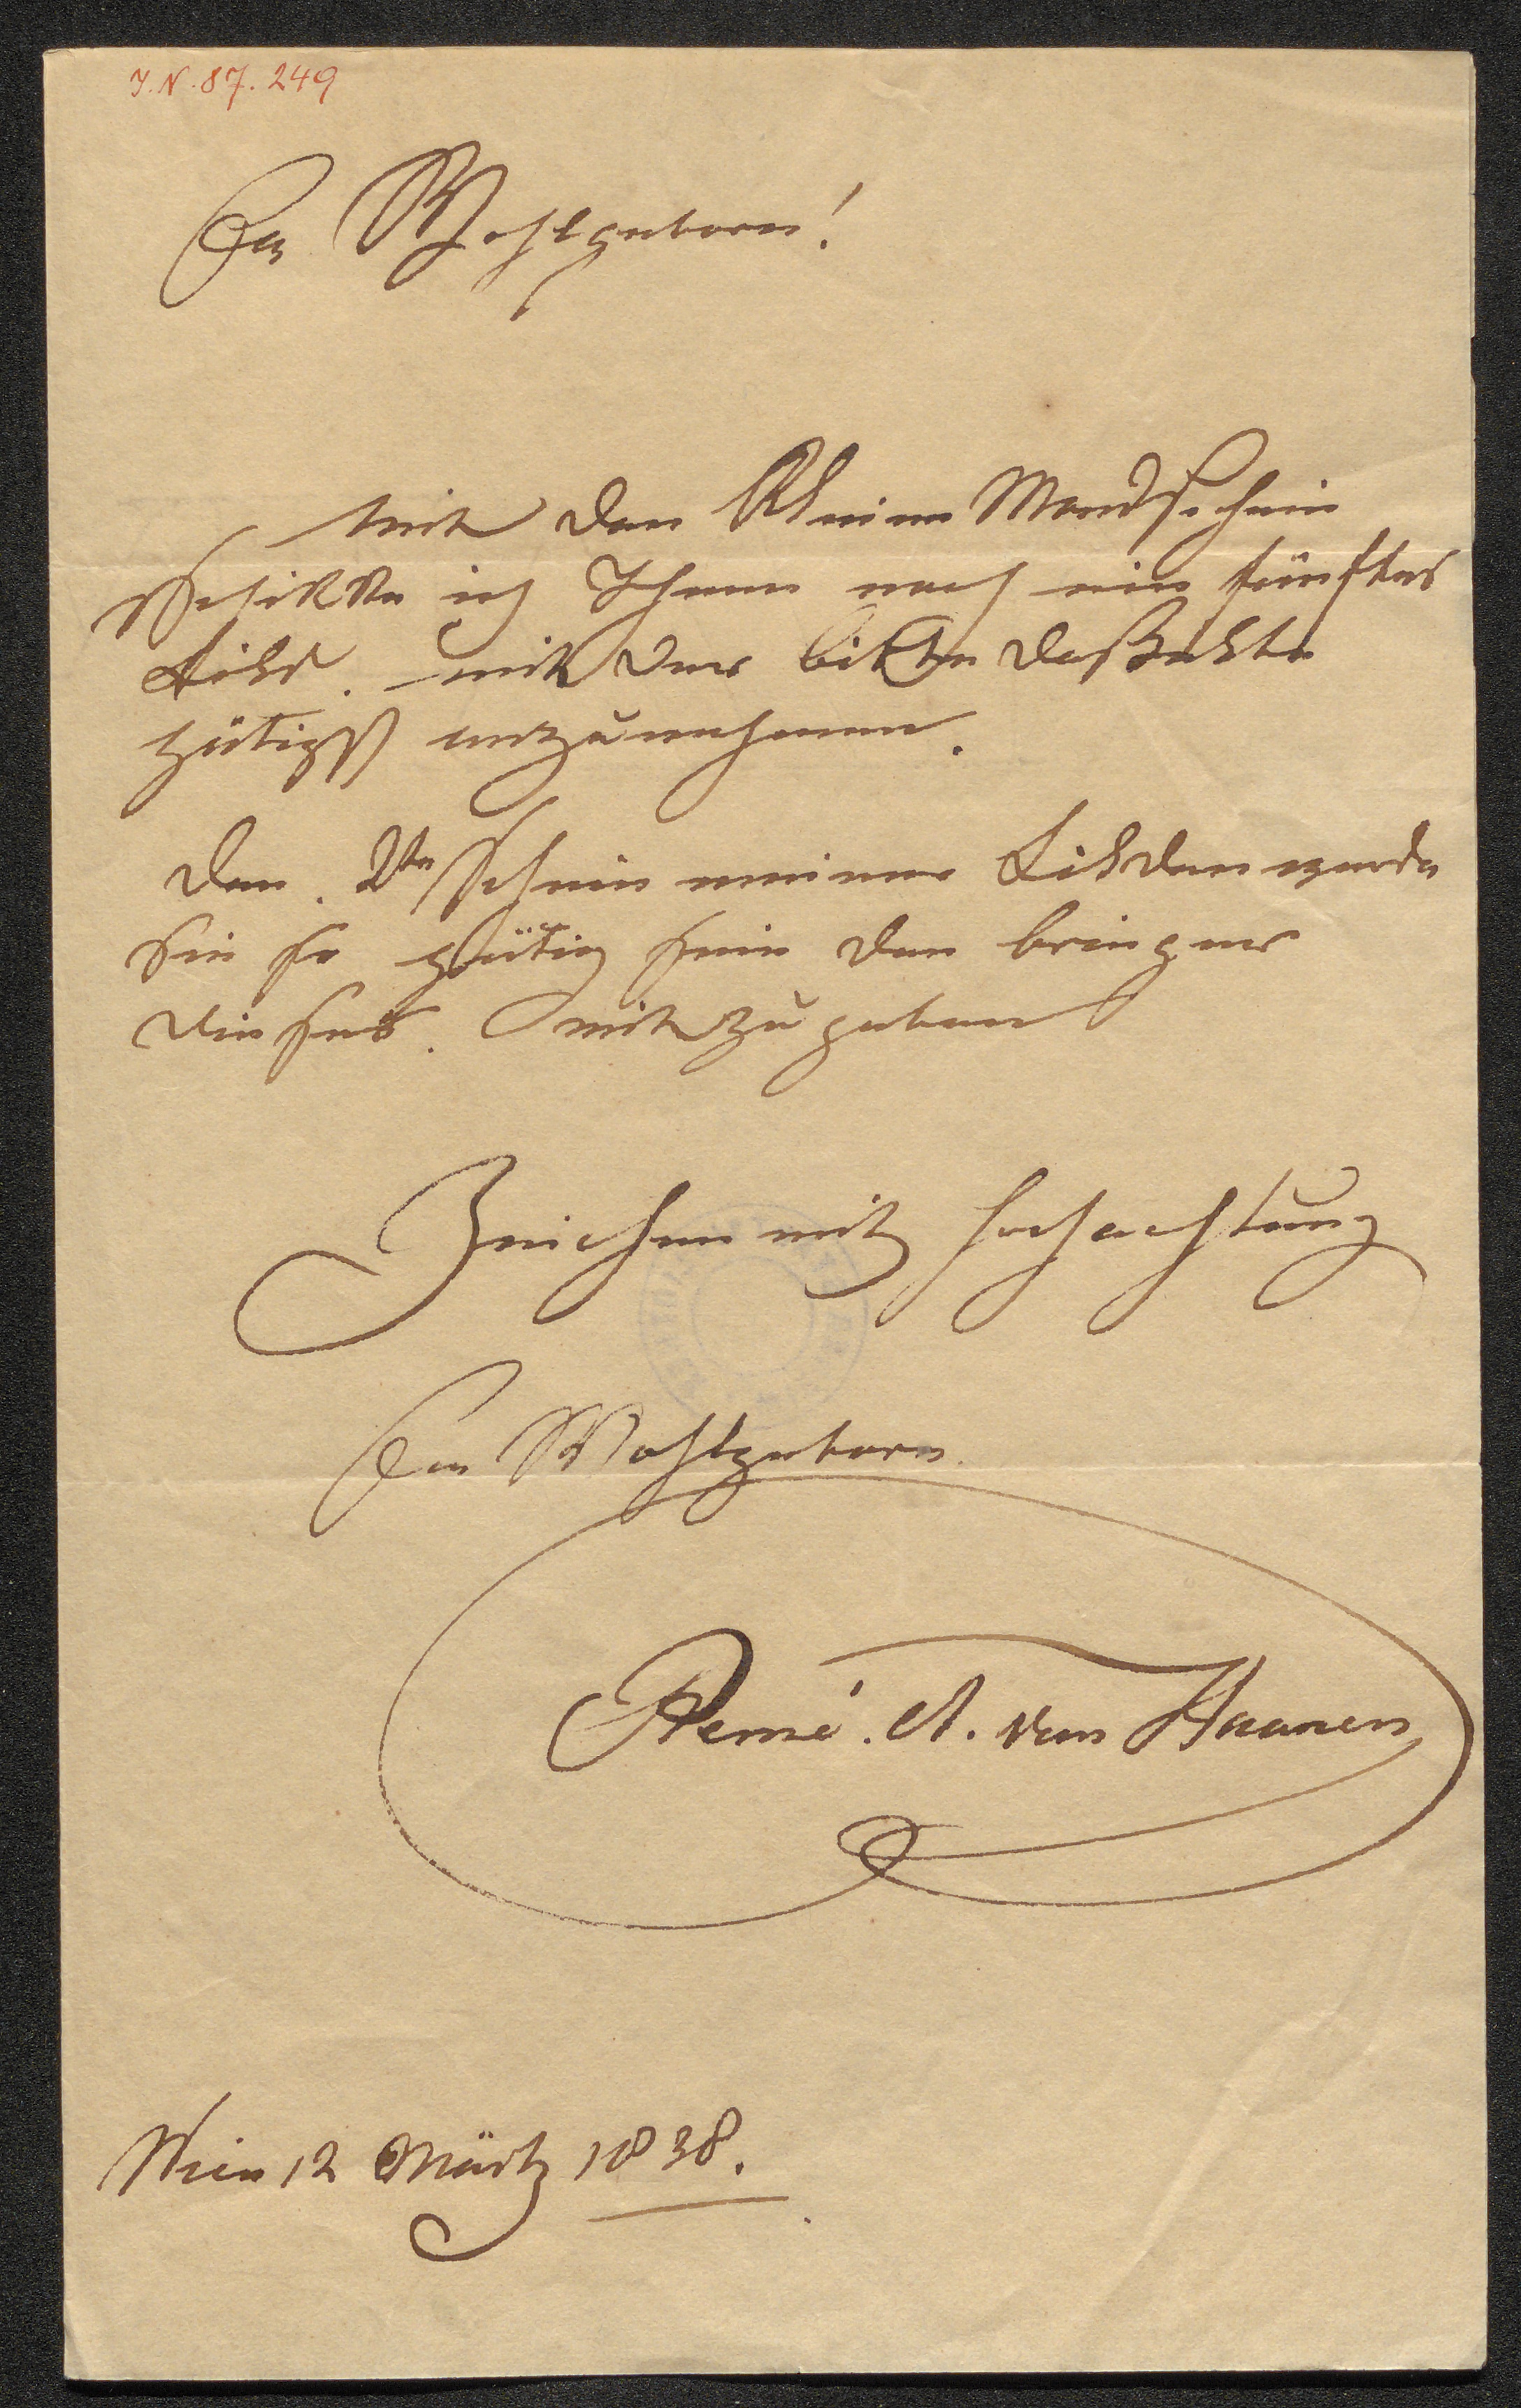 I.N. 87.249
Eu Wohlgeborn!
Mit den Kleinen Mondschein
schikke ich Ihnen noch ein fünftes
mit der bitte daßelbte
gütigst anzunehmen.
Den 2ten schein meiner werde
sie so gütig sein den bringer
dieses. mitzugeben
Zeichne mit hochachtung
Eu Wohlgeborn.
Remé. A. van Haanen
Wien 12 Märtz 1838.